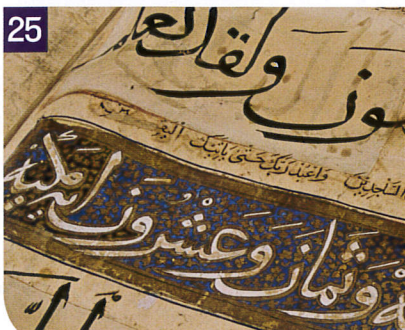 25
ولقد
الساجدين واعبد ربك حتى يأتيك اليقين
وثمان وعشرون اية مكية